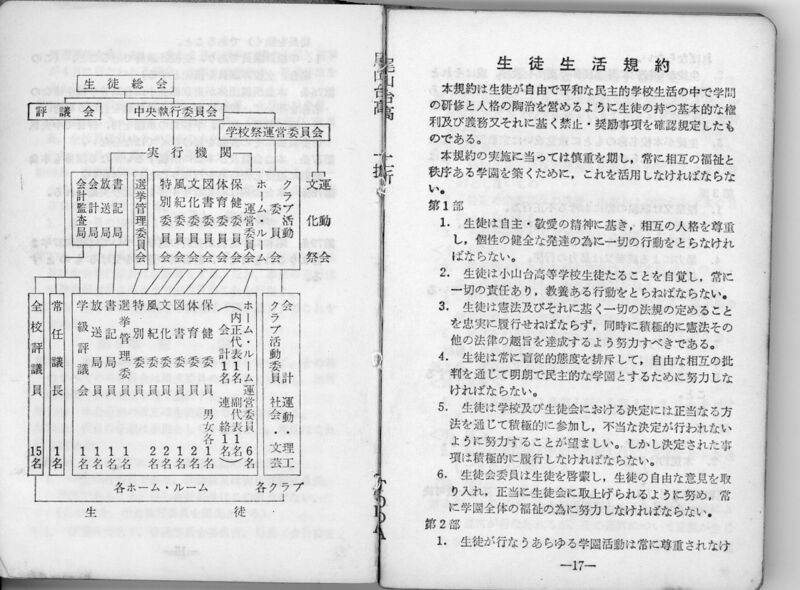 生徒総会
評議会
中央執行委員会
学校祭運営委員会
実行機関
会計監査局
会計局
放送局
書記局
選挙管理委員会
特別委員会
風紀委員会
文化委員会
図書委員会
体育委員会
保健委員会
ホーム・ルーム運営委員会
クラブ活動委員会
文化祭
運動会
全校評議員 15名
常任議長 1名
学級評議会 1名
放送局員 1名
書記局員 1名
選挙管理委員 1名
特別委員
風紀委員 2名
文化委員 2名
図書委員 1名
体育委員 2名
保健委員 男女各1名
ホーム・ルーム運営委員 6名
(内正代表1名 副代表1名
会計1名 連絡1名)
クラブ活動委員
会計
運動・理工
社会・文芸
各ホーム・ルーム
各クラブ
生徒
生徒生活規約
本規約は生徒が自由で平和な民主的学校生活の中で学問
の研修と人格の陶治を営めるように生徒の持つ基本的な権
利及び義務又それに基く禁止・奨励事項を確認規定したも
のである。
本規約の実施に当っては慎重を期し，常に相互の福祉と
秩序ある学園を築くために，これを活用しなければならな
い。
第1部
1． 生徒は自主・敬愛の精神に基き，相互の人格を尊重
し，個性の健全な発達の為に一切の行動をとらなけれ
ばならない。
2． 生徒は小山台高等学校生徒たることを自覚し，常に
一切の責任あり，教養ある行動をとらねばならない。
3． 生徒は憲法及びそれに基く一切の法規の定めること
を忠実に履行せねばならず，同時に積極的に憲法その
他の法律の趣旨を達成するよう努力すべきである。
4． 生徒は常に盲従的態度を排斥して，自由な相互の批
判を通じて明朗で民主的な学園とするために努力しな
ければならない。
5． 生徒は学校及び生徒会における決定には正当なる方
法を通じて積極的に参加し，不当な決定が行われない
ように努力することが望ましい。しかし決定された事
項は積極的に履行しなければならない。
6． 生徒会委員は生徒を啓蒙し，生徒の自由な意見を取
り入れ，正当に生徒会に取上げられるように努め，常
に学園全体の福祉の為に努力しなければならない。
第2部
1． 生徒が行なうあらゆる学園活動は常に尊重されなけ
—17—